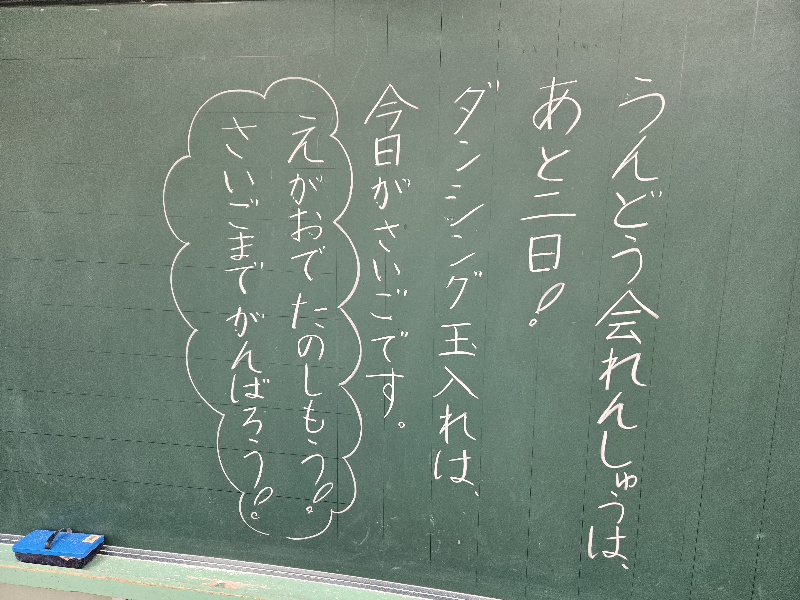 うんどう会れんしゅうは、
あと二日!
ダンシング玉入れは、
今日がさいごです。
えがおでたのしもう!
さいごまでがんばろう!